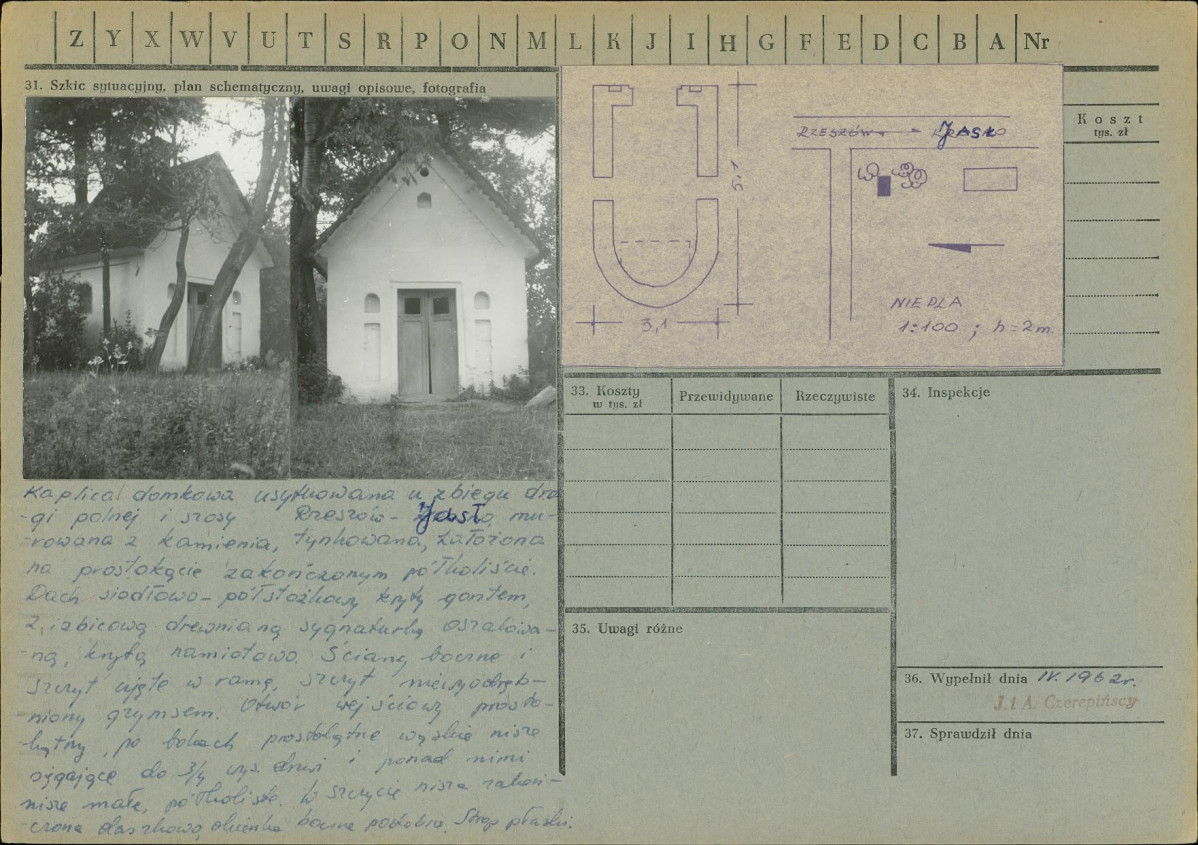 Z Y X W V U T S R P O N M L K J I H G F E D C B A Nr
31. Szkic sytuacyjny, plan schematyczny, uwagi opisowe, fotografia
Koszt
tys. zł
RZESZÓW - JASŁO
5,1
3,1
NIEPLA
1:100 ; h=2m.
Kaplica domkowa usytuowana u zbiegu dro-
-gi polnej i szosy Rzeszów - Jasło, mu-
-rowana z kamienia, tynkowana, założona
na prostokącie zakończonym półkoliście.
Dach siodłowo-półstożkowy kryty gontem,
z izbicową drewnianą sygnaturką oszalowa-
-ną, krytą namiotowo. Ściany boczne i
szczyt ujęte w ramę, szczyt niewyodręb-
-niony gzymsem. Otwór wejściowy prosto-
-kątny, po bokach prostokątne wysokie nisze
sięgające do 3/4 wys. drzwi i ponad nimi
nisze małe, półkoliste. W szczycie nisza zakoń-
-czona daszkowo, okienka boczne podobne. Strop płaski.
33. Koszty
w tys. zł
Przewidywane
Rzeczywiste
34. Inspekcje
35. Uwagi różne
36. Wypełnił dnia IV. 1962r.
J. i A. Czerepińscy
37. Sprawdził dnia